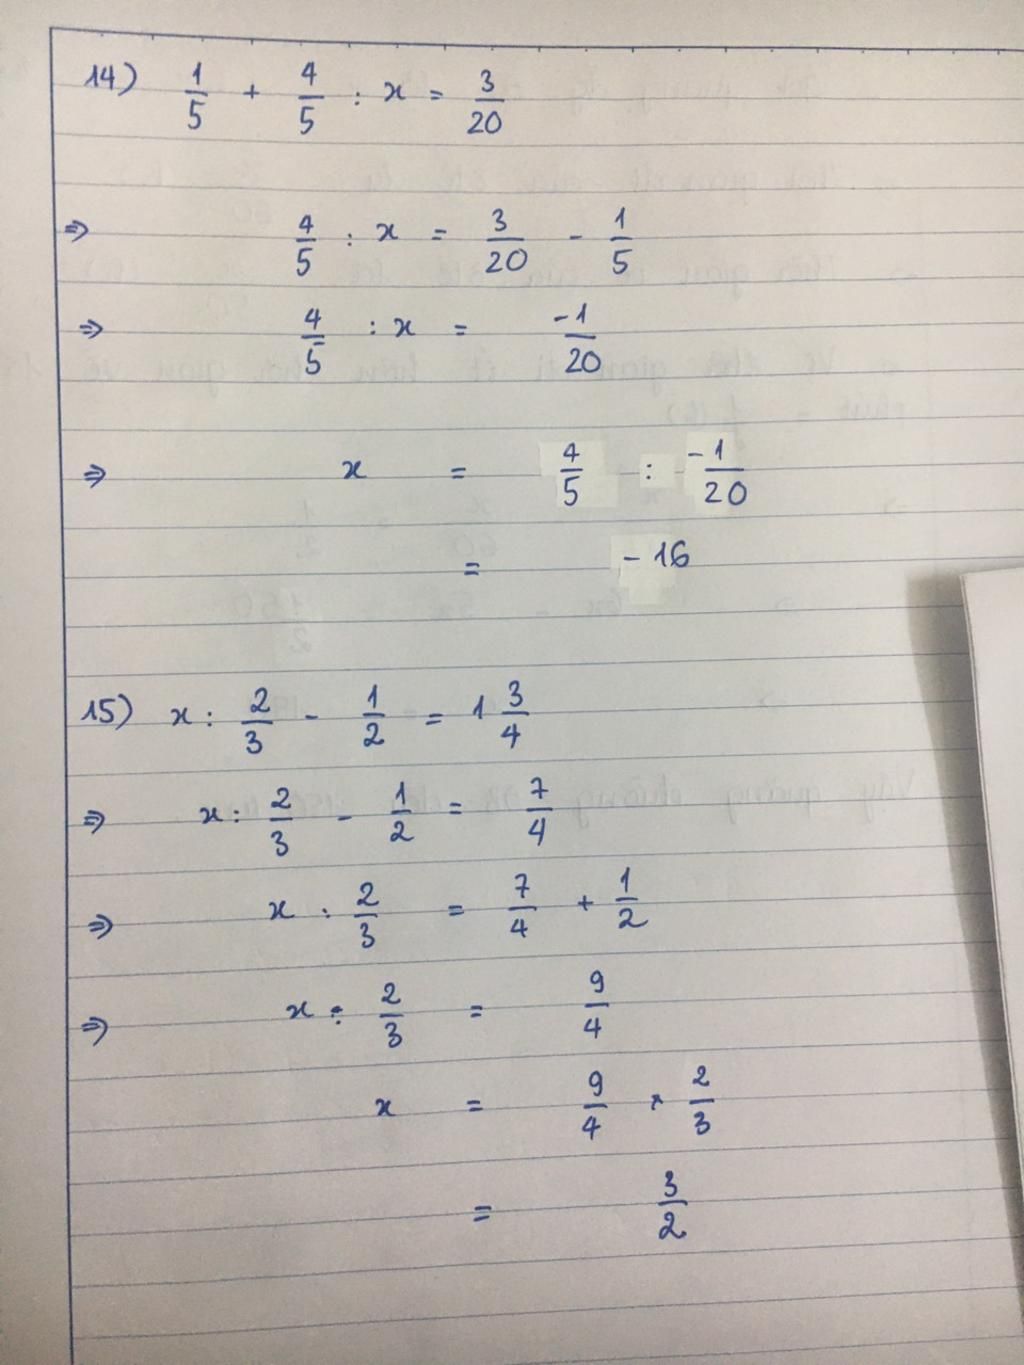 14) 1/5 + 4/5 : x = 3/20
⇒ 4/5 : x = 3/20 - 1/5
⇒ 4/5 : x = -1/20
⇒ x = 4/5 : -1/20
= -16
15) x : 2/3 - 1/2 = 1 3/4
⇒ x : 2/3 - 1/2 = 7/4
⇒ x : 2/3 = 7/4 + 1/2
⇒ x : 2/3 = 9/4
x = 9/4 × 2/3
= 3/2